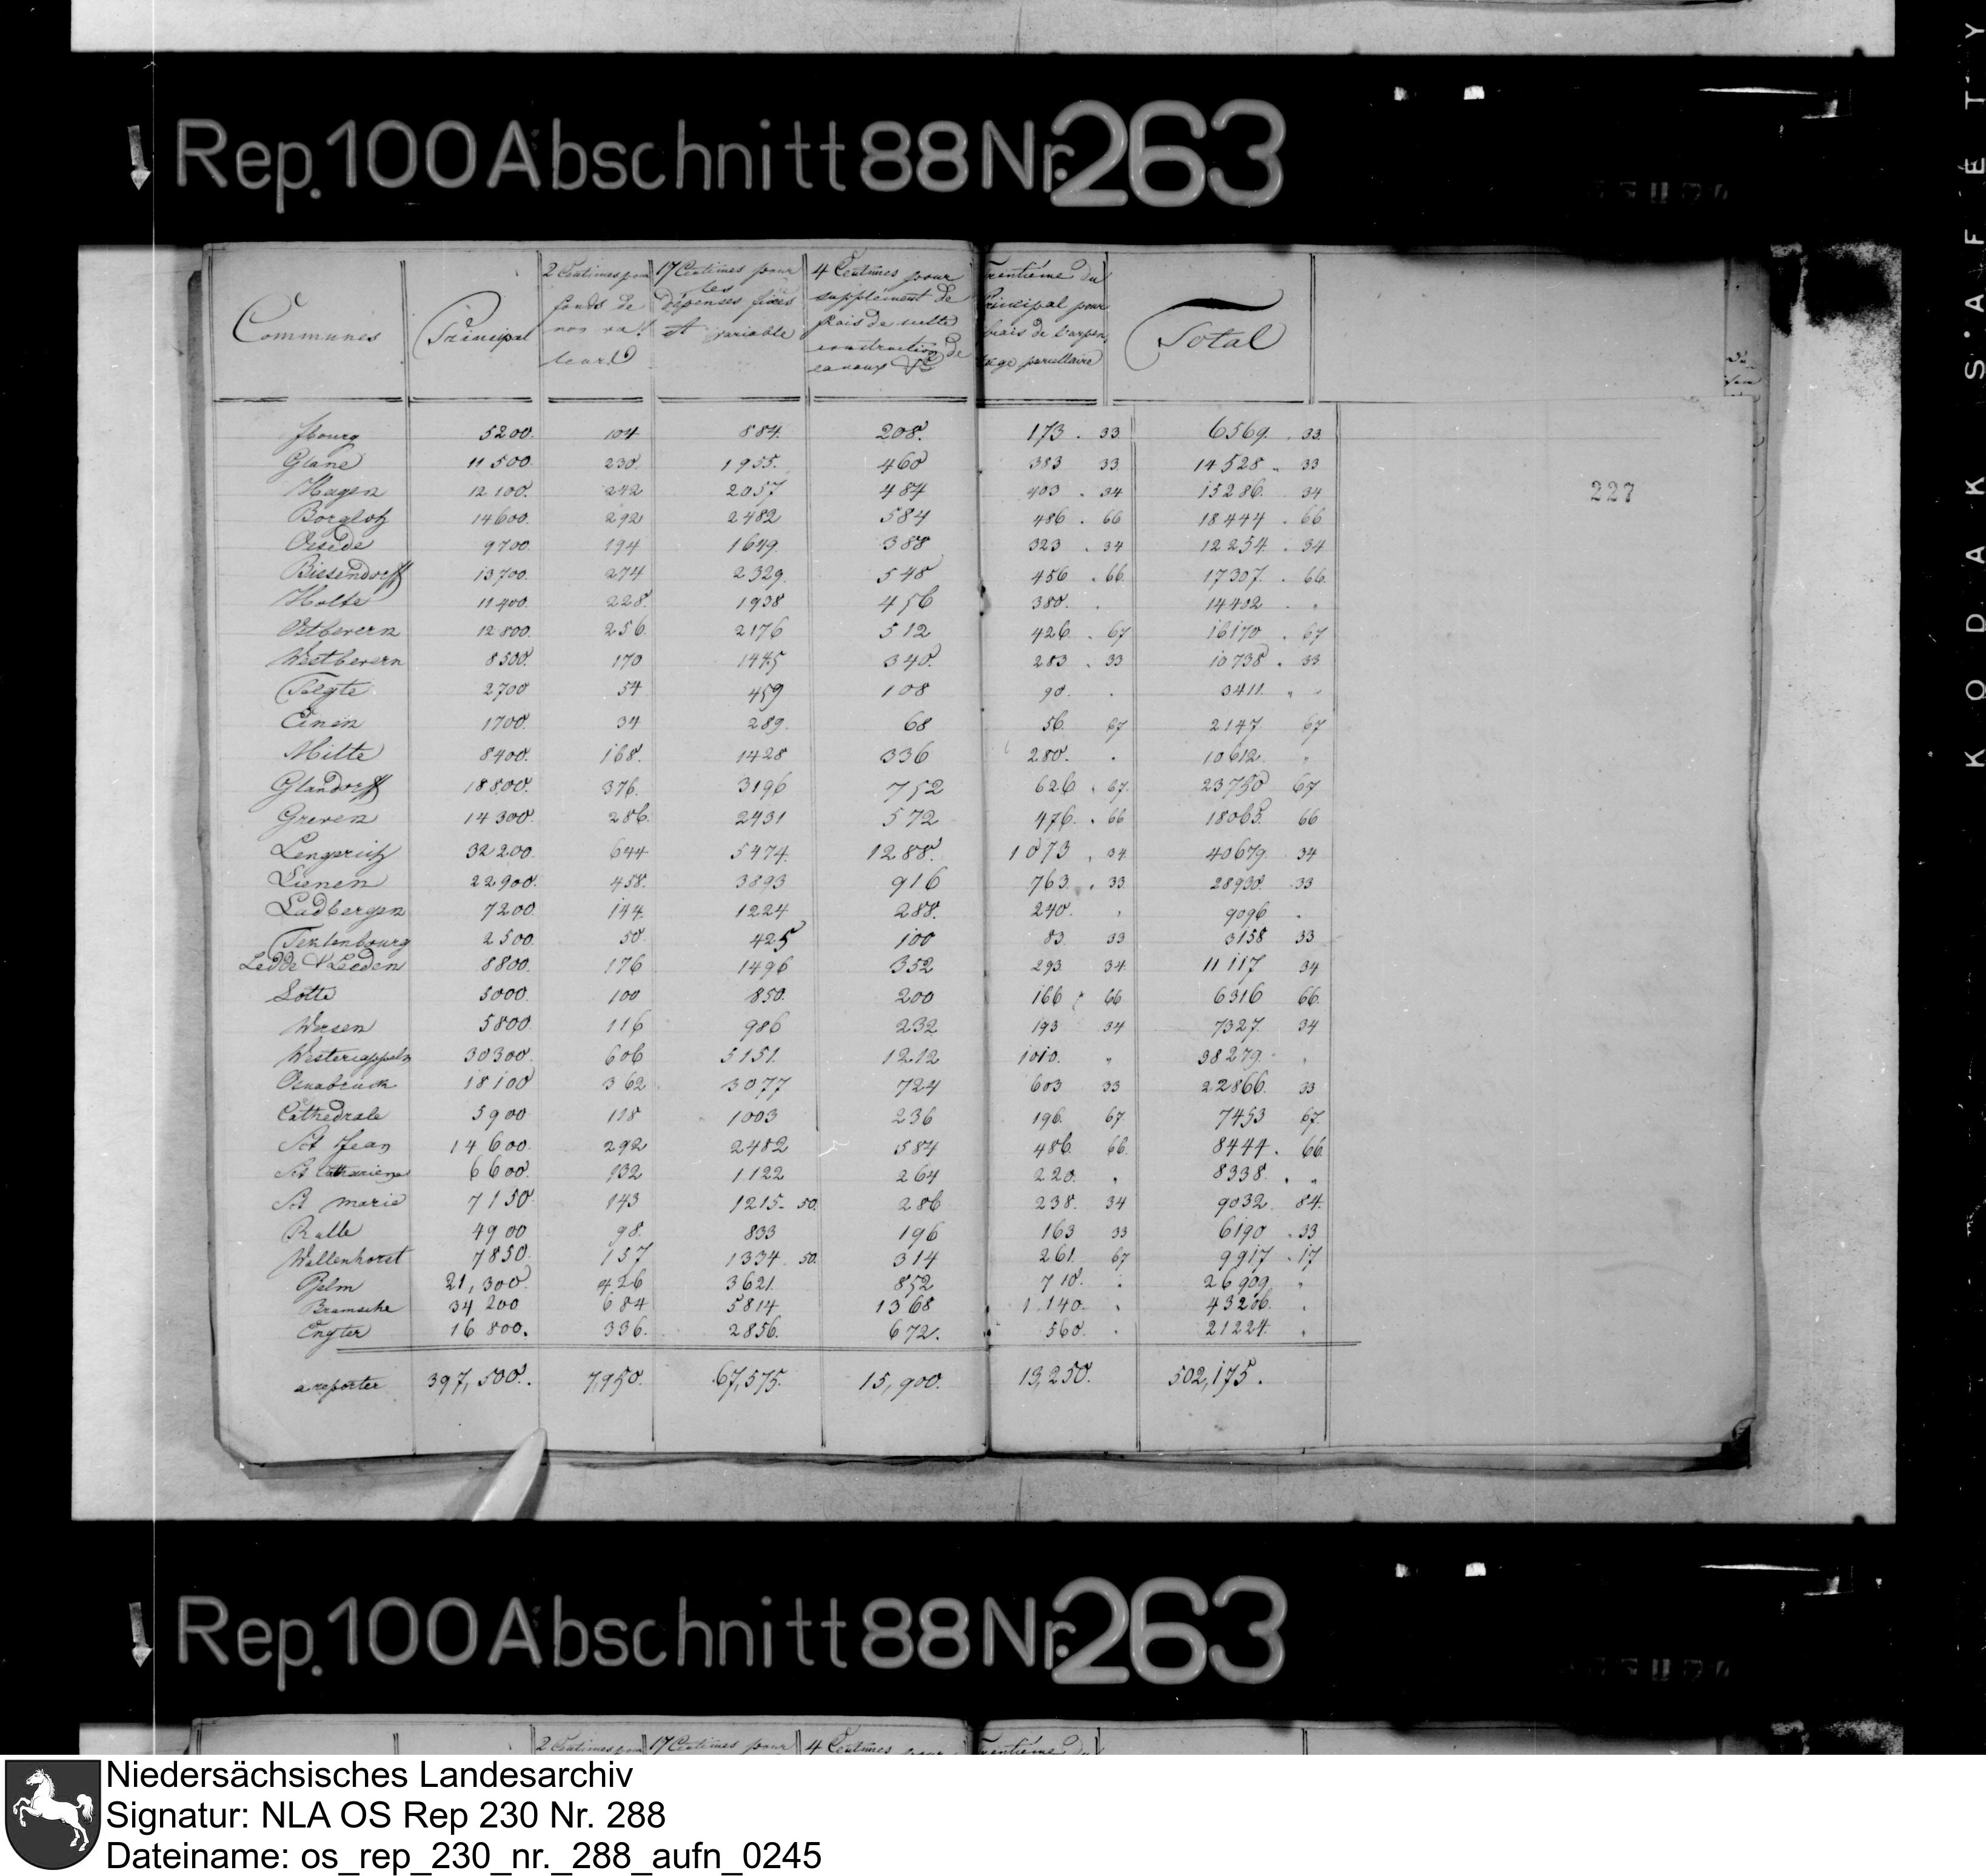 KODAK S'AFETY
Rep. 100 Abschnitt 88 Nr. 263
Communes Principal 2 Centimes pour fonds de non valleurs 17 Centimes pour les dépenses fixes et variable 4 Centimes pour supplément de frais de culte construction de canaux &c trentième du Principal pour frais de l'arpentage parcellaire Total
Jbourg 5200. 104 884. 208. 173. 33 6569. 33
Glane 11500. 230. 1955. 460 383 33 14528 33
Hagen 12100. 242 2057 484 403. 34 15286. 34
227
Borgloh 14600. 292 2482 584 486. 66 18444. 66
Oesede 9700. 194 1649. 388 323. 34 12254. 34
Bissendorff 13700. 274 2329. 548 456. 66 17307. 66
Holte 11400. 228. 1938 456 380. 14402
Ostbevern 12800. 256. 2176 512 426. 67 16170. 67
Westbevern 8500. 170 1445 340. 283. 33 10738. 33
Telgte 2700 54 459 108 90. 3411.
Einen 1700. 34 289. 68 56. 67 2147. 67
Milte 8400. 168. 1428 336 280. 10612
Glandorff 18800. 376. 3196 752 626. 67 23750 67
Greven 14300. 286. 2431 572 476. 66 18065. 66
Lengerich 32200. 644 5474. 1288. 1073. 34 40679. 34
Lienen 22900. 458. 3893 916 763. 33 28930. 33
Ladbergen 7200. 144. 1224 288. 240. 9096
Teklenbourg 2500. 50. 425 100 83 33 3158 33
Ledde & Leeden 8800. 176 1496 352 293. 34 11117 34
Lotte 5000. 100 850. 200 166 66 6316 66.
Wersen 5800. 116 986 232 193 34 7327. 34
Westercappeln 30300. 606 5151. 1212 1010. 38279.
Osnabruck 18100 362 3077 724 603 33 22866. 33
Cathedrale 5900 118 1003 236 196. 67 7453 67.
St Jean 14600. 292 2482 584 486. 66. 8444. 66
St Cathariene 6600. 132 1122 264 220. 8338.
St marie 7150. 143 1215. 50. 286 238. 34 9032. 84.
Rulle 4900 98. 833 196 163 33 6190. 33
Wallenhorst 7850. 157 1334. 50. 314 261. 67 9917. 17
Belm 21,300. 426 3621. 852 710. 26909.
Bramsche 34200 684 5814 1368 1.140. 43206.
Engter 16800. 336. 2856. 672. 560. 21224.
a reporter 397,500. 7,950. 67,575. 15,900. 13,250. 502,175.
Rep. 100 Abschnitt 88 Nr. 263
2 Centimes pour 17 Centimes pour 4 Centimes pour trentième du
Niedersächsisches Landesarchiv
Signatur: NLA OS Rep 230 Nr. 288
Dateiname: os_rep_230_nr._288_aufn_0245